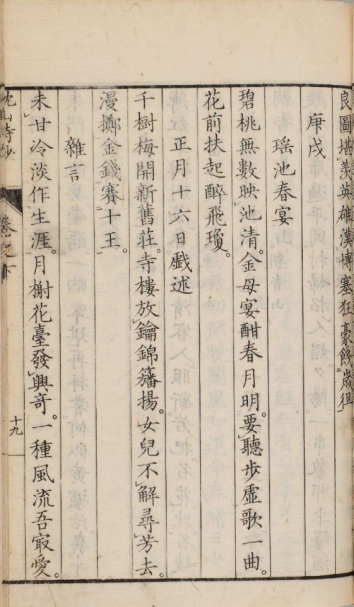 良圖堪羨英雄漢博塞狂豪餞歲徂
庚戌
瑤池春宴
碧桃無數映池清。金母宴酣春月明。要聽步虛歌一曲。
花前扶起醉飛瓊。
正月十六日戲述
千樹梅開新舊莊。寺樓放鑰錦籓揚。女兒不解尋芳去。
漫擲金錢賽十王。
雜言
未甘冷淡作生涯。月榭花臺發興奇。一種風流吾㝡愛。
十九